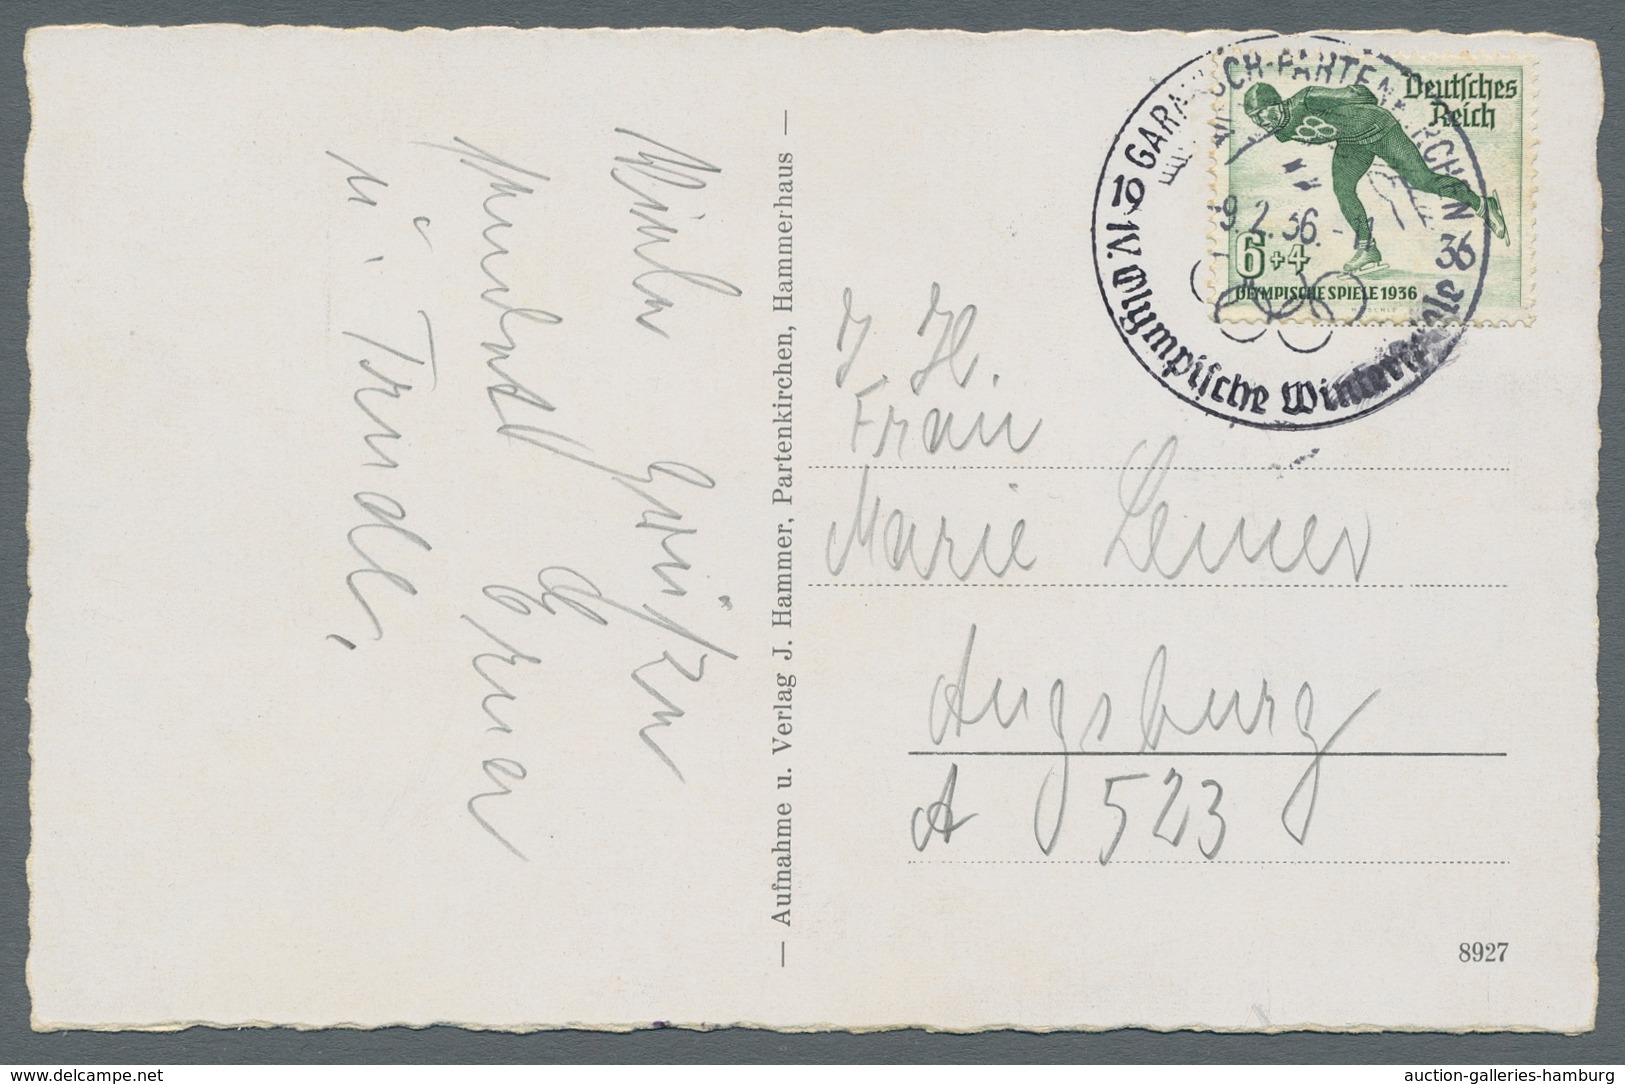 GARMISCH-PARTENKIRCHEN
9.2.36.
IV. Olympische Winterspiele 36
Deutsches
Reich
6+4
OLYMPISCHE SPIELE 1936
Frau
Marie
Augsburg
A 523
— Aufnahme u. Verlag J. Hammer, Partenkirchen, Hammerhaus —
Viele Grüßen
u. Trudl.
8927
www.delcampe.net
auction-galleries-hamburg